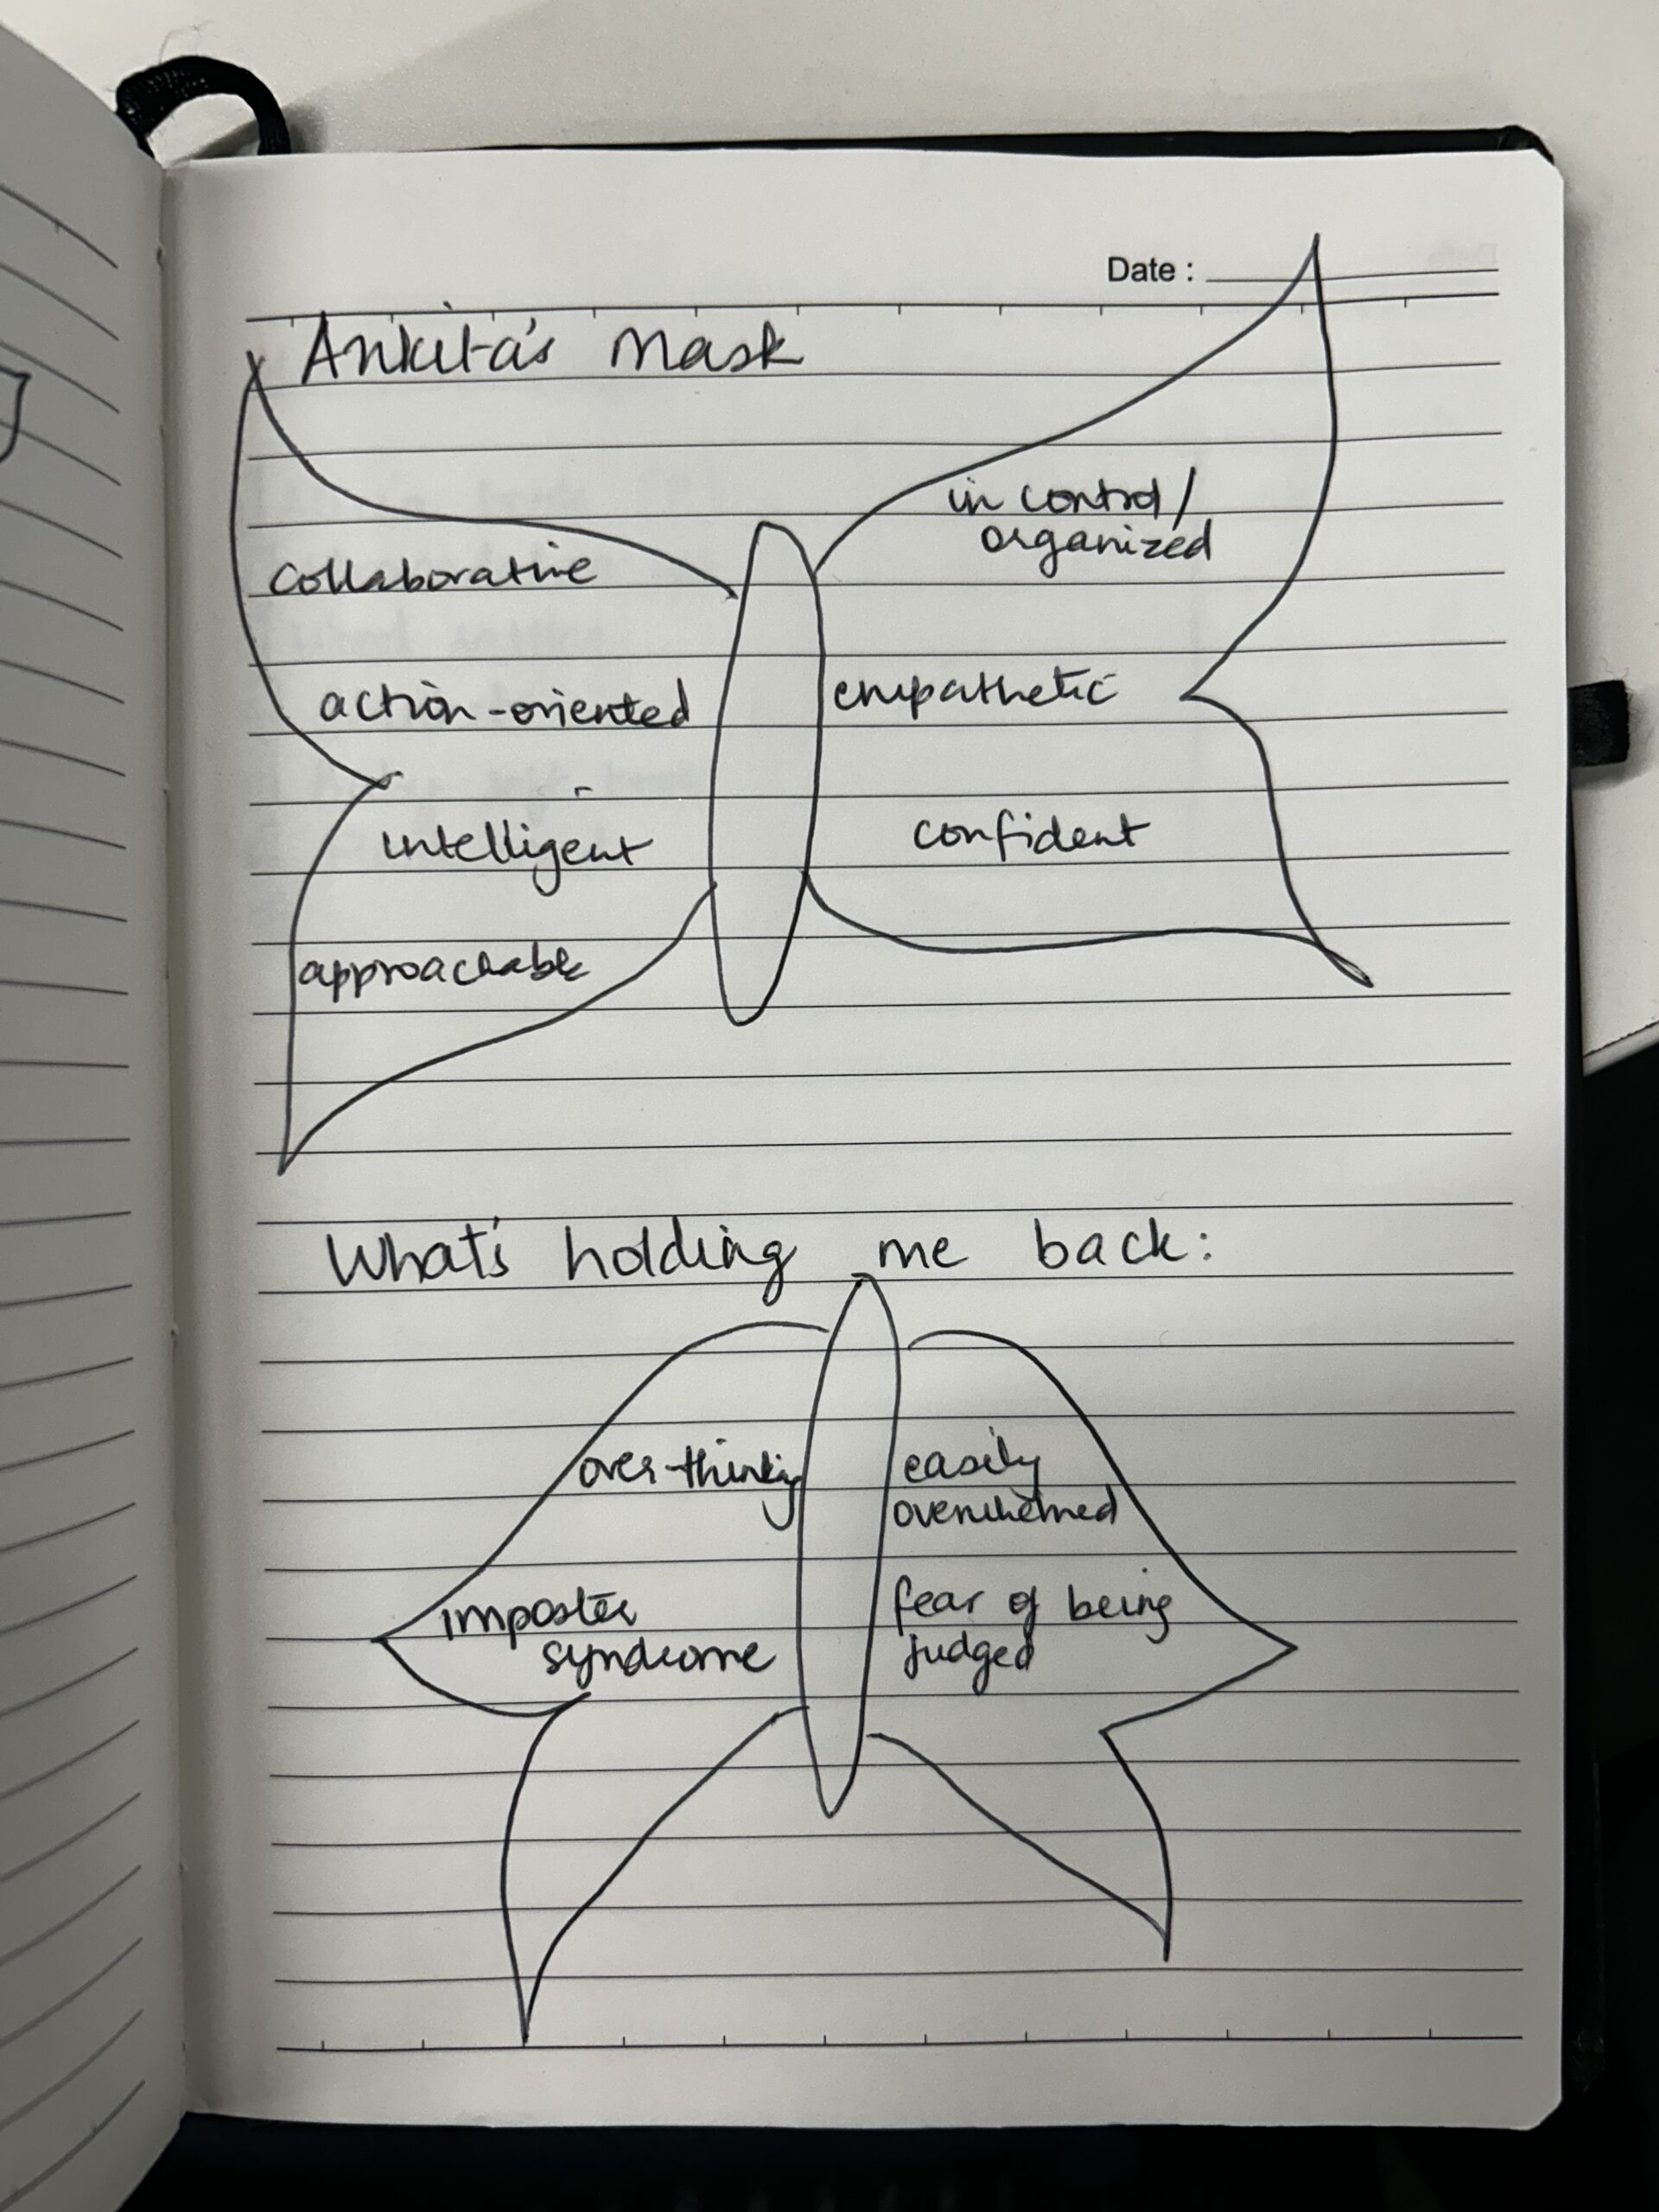 Date :
Ankita's Mask
in control /
organized
collaborative
action-oriented
empathetic
intelligent
confident
approachable
What's holding me back:
over-thinking
easily
overwhelmed
imposter
syndrome
fear of being
judged